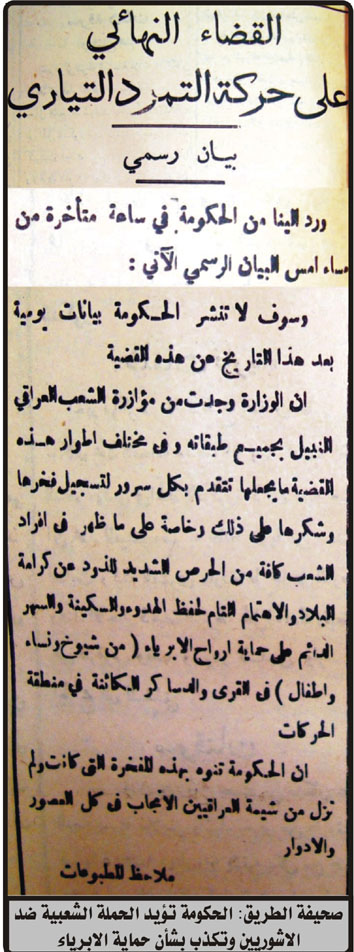 القضاء النهائي
على حركة التمرد التياري
بيان رسمي
ورد الينا من الحكومة في ساعة متأخرة من
مساء امس البيان الرسمي الآتي :
وسوف لا تنشر الحكومة بيانات يومية
بعد هذا التاريخ عن هذه القضية
ان الوزارة وجدت من مؤازرة الشعب العراقي
النبيل بجميع طبقاته وفى مختلف اطوار هذه
القضية ما يجعلها تتقدم بكل سرور لتسجيل فخرها
وشكرها على ذلك وخاصة على ما ظهر فى افراد
الشعب كافة من الحرص الشديد للذود عن كرامة
البلاد والاهتمام التام لحفظ الهدوء والسكينة والسهر
الدائم على حماية ارواح الابرياء ( من شيوخ ونساء
واطفال ) فى القرى والدساكر الكائنة في منطقة
الحركات
ان الحكومة تنوه بهذه المفخرة التى كانت ولم
تزل من شيمة العراقيين الانجاب فى كل العصور
والادوار
ملاحظ المطبوعات
صحيفة الطريق: الحكومة تؤيد الحملة الشعبية ضد
الاشوريين وتكذب بشأن حماية الابرياء